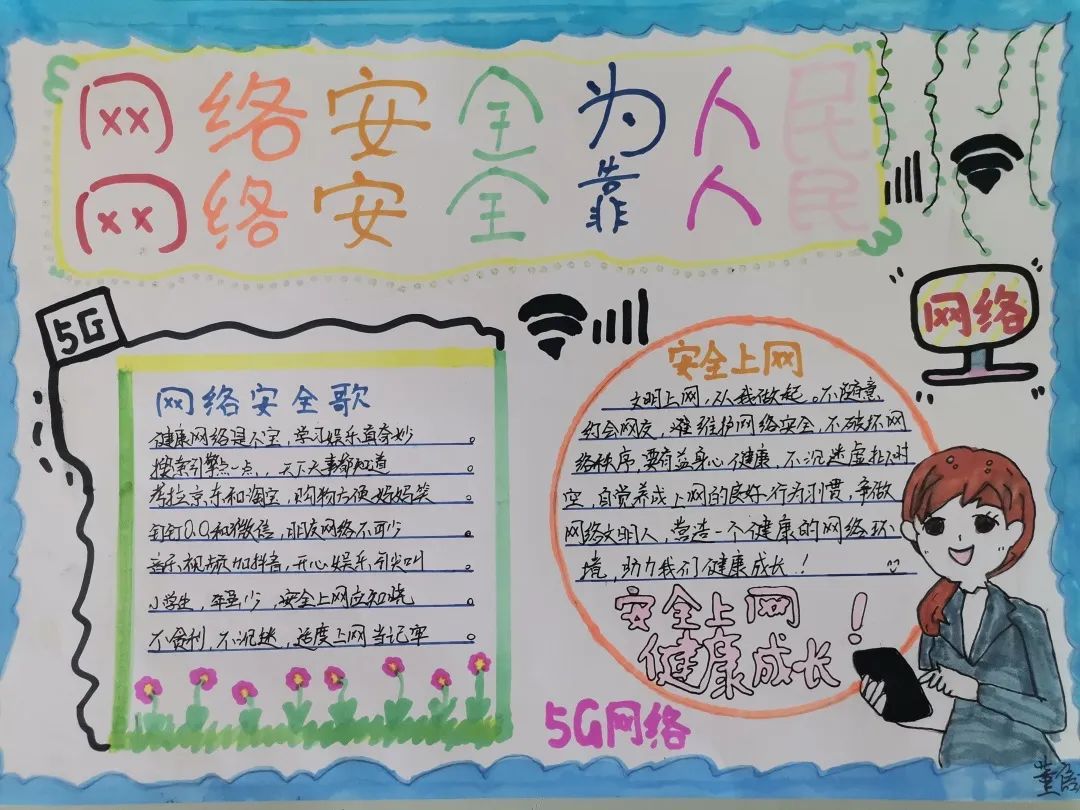 网络安全为人民
网络安全靠人民
5G
网络
网络安全歌
健康网络是个宝，学习娱乐真奇妙。
搜索引擎点一点，天下大事都知道
考拉京东和淘宝，购物方便妈妈笑。
钉钉QQ和微信，朋友网络不可少。
音乐视频加抖音，开心娱乐引尖叫。
小学生，年虽少，安全上网应知晓。
不贪利，不沉迷，适度上网当记牢。
安全上网
文明上网，从我做起。不随意
约会网友，维护网络安全，不破坏网
络秩序，要有益身心健康，不沉迷虚拟时
空，自觉养成上网的良好行为习惯，争做
网络文明人，营造一个健康的网络环
境，助力我们健康成长！
安全上网
健康成长！
5G网络